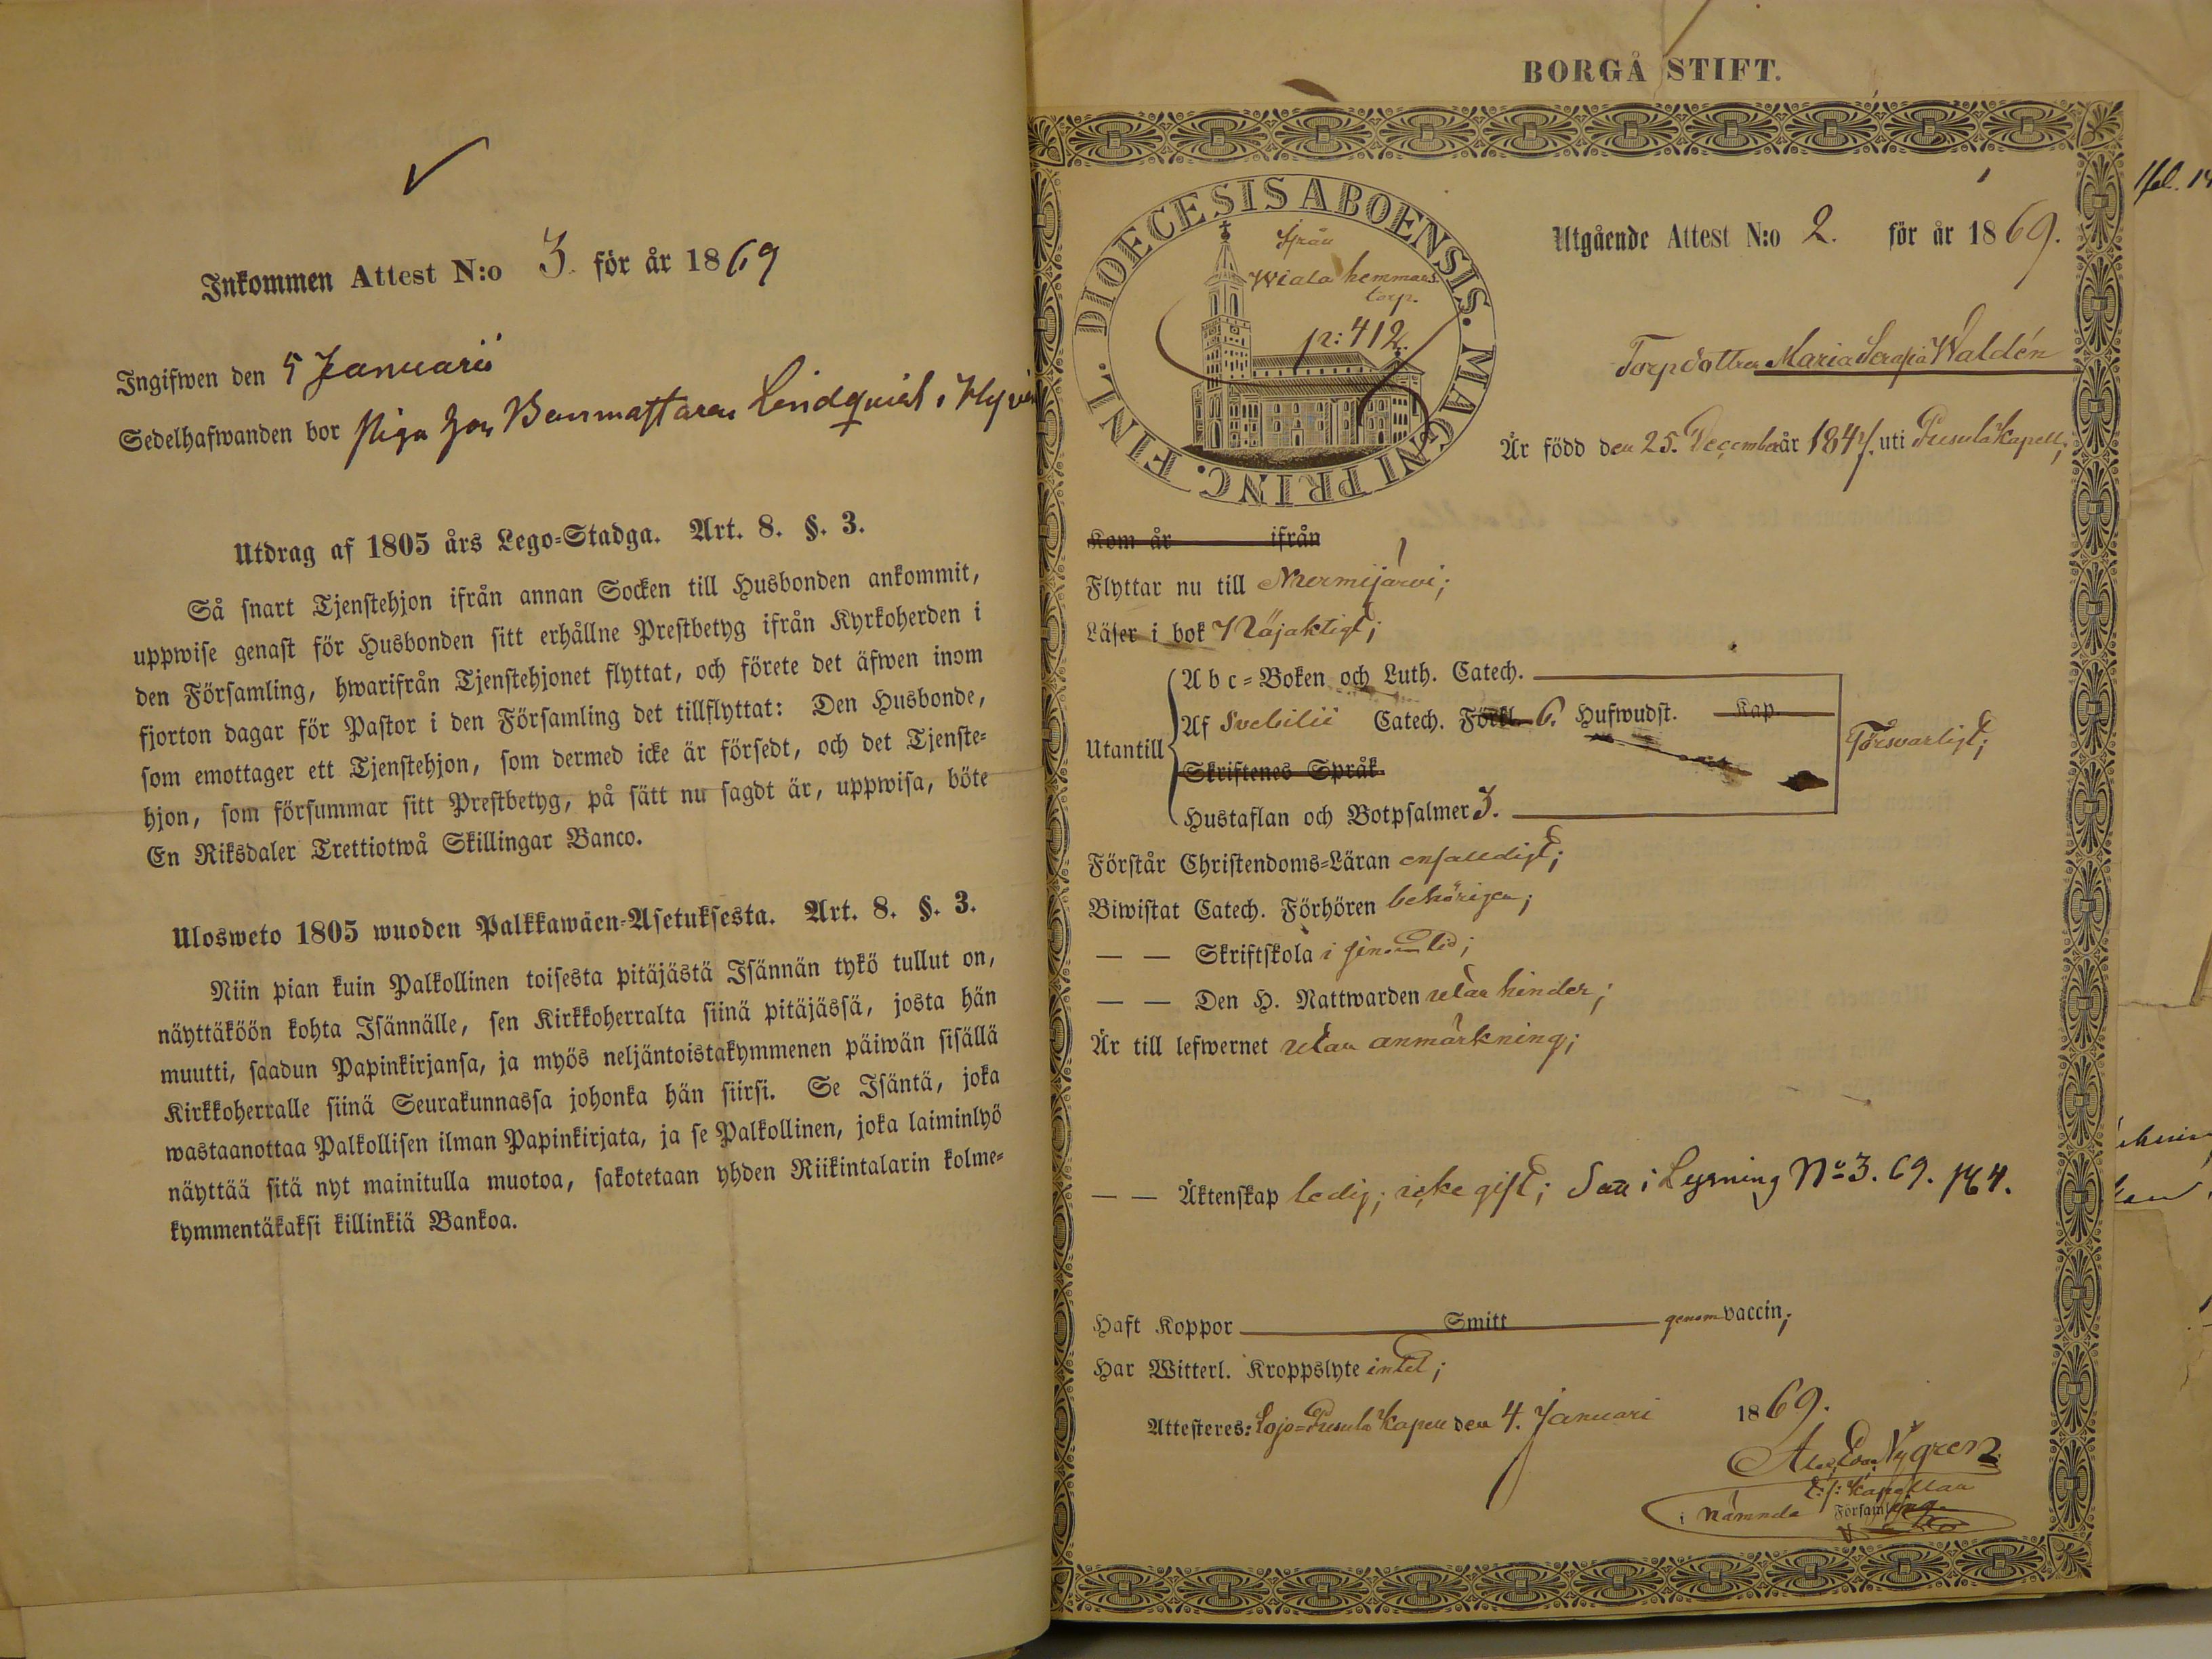 Inkommen Attest N:o 3. för år 1869
Ingifwen den 5 Januarii
Sedelhafwanden bor piga hos Banmästaren Lindqvist i Hyvin
Utdrag af 1805 års Lego-Stadga. Art. 8. §. 3.
Så snart Tjenstehjon ifrån annan Socken till Husbonden ankommit,
uppwise genast för Husbonden sitt erhållne Prestbetyg ifrån Kyrkoherden i
den Församling, hwarifrån Tjenstehjonet flyttat, och förete det äfwen inom
fjorton dagar för Pastor i den Församling det tillflyttat: Den Husbonde,
som emottager ett Tjenstehjon, som dermed icke är försedt, och det Tjenste-
hjon, som försummar sitt Prestbetyg, på sätt nu sagdt är, uppwisa, böte
En Riksdaler Trettiotwå Skillingar Banco.
Ulosweto 1805 wuoden Palkkawäen-Asetuksesta. Art. 8. §. 3.
Niin pian kuin Palkollinen toisesta pitäjästä Isännän tykö tullut on,
näyttäköön kohta Isännälle, sen Kirkkoherralta siinä pitäjässä, josta hän
muutti, saadun Papinkirjansa, ja myös neljäntoistakymmenen päiwän sisällä
Kirkkoherralle siinä Seurakunnassa johonka hän siirsi. Se Isäntä, joka
wastaanottaa Palkollisen ilman Papinkirjata, ja se Palkollinen, joka laiminlyö
näyttää sitä nyt mainitulla muotoa, sakotetaan yhden Riikintalarin kolme-
kymmentäkaksi killinkiä Bankoa.
BORGÅ STIFT.
DIOECESIS ABOENSIS. MAGNI PRINC. FINL.
ifrån
Wiala hemmans
torp.
p: 412.
Utgående Attest N:o 2. för år 1869.
Torpdottren Maria Serafia Waldén
Är född den 25. December år 1847. uti Pusula Kapell;
Kom år ifrån
Flyttar nu till Nurmijärvi;
Läser i bok Nöjaktigt;
Utantill
A b c-Boken och Luth. Catech.
Af Svebilii Catech. Förkl. 6. Hufwudst. Kap.
Skriftenes Språk
Hustaflan och Botpsalmer 3.
Försvarligt;
Förstår Christendoms-Läran enfaldigt;
Biwistat Catech. Förhören behörigen;
— — Skriftskola i sinom tid;
— — Den H. Nattwarden utan hinder;
Är till lefwernet utan anmärkning;
— — Äktenskap ledig; icke gift; Sen i Lysning No 3. 69. p 4.
Haft Koppor Smitt genom vaccin;
Har Witterl. Kroppslyte intet;
Attesteres: Lojo-Pusula Kapell den 4. Januari 1869.
Nygren
Kapellan
i Nämnde Församling.